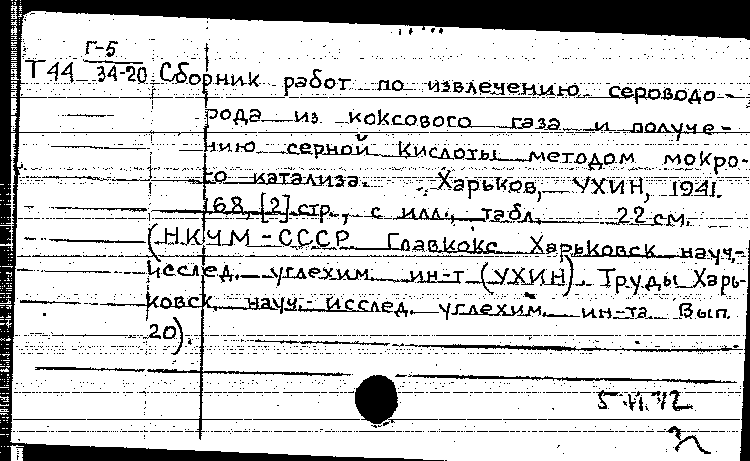 Г-5
Т44 34-20 Сборник работ по извлечению сероводо-
рода из коксового газа и получе-
нию серной кислоты методом мокро-
го катализа. Харьков, УХИН, 1941.
168, [2] стр., с илл., табл. 22 см.
(НКЧМ-СССР. Главкокс Харьковск науч.-
исслед. углехим. ин-т (УХИН). Труды Харь-
ковск. науч.-исслед. углехим. ин-та. Вып.
20).